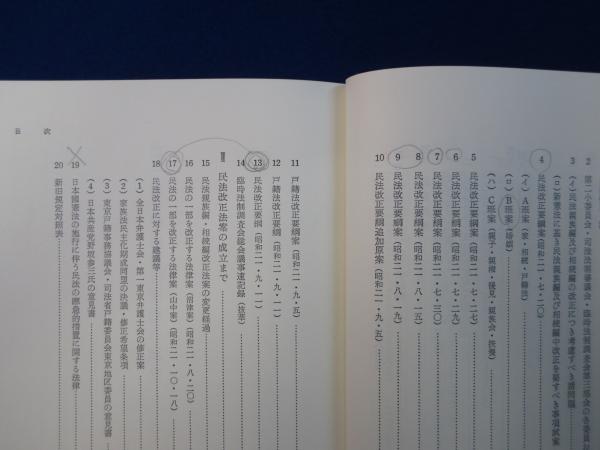 2 第二小委員会・司法法制審議会・臨時法制調査会第三部会の各委員
3 (イ)民法親族編及び相続編の改正につき考慮すべき諸問題
(ロ)新憲法に基き民法親族編及び相続編中改正を要すべき事項試案
4 民法改正要綱案(昭和二一・七・二〇)
(イ)A班案(家・相続・戸籍法)
(ロ)B班案(婚姻)
(ハ)C班案(親子・親権・後見・親族会・扶養)
5 民法改正要綱案(昭和二一・七・
6 民法改正要綱案(昭和二一・七・二九)
7 民法改正要綱案(昭和二一・七・三〇)
8 民法改正要綱案(昭和二一・八・
9 民法改正要綱案(昭和二一・八・一九)
10 民法改正要綱追加原案(昭和二一・九・五)
11 戸籍法改正要綱案(昭和二一・九・五)
12 戸籍法改正要綱(昭和二一・九・一一)
13 民法改正要綱(昭和二一・九・一一)
14 臨時法制調査会総会議事速記録(抜萃)
Ⅱ 民法改正法案の成立まで
15 民法親族編・相続編改正法案の変更経過
16 民法の一部を改正する法律案(沼津案)(昭和二一・八・二〇)
17 民法の一部を改正する法律案(山中案)(昭和二一・一〇・一八)
18 民法改正に対する建議等
(1)全日本弁護士会・第一東京弁護士会の修正案
(2)家族法民主化期成同盟の決議・修正希望条項
(3)東京戸籍事務協議会・司法省戸籍委員会東京地区委員の意見書
(4)日本共産党野坂参三氏の意見書
19 日本國憲法の施行に伴う民法の應急的措置に関する法律
20 新旧規定対照表
目 次